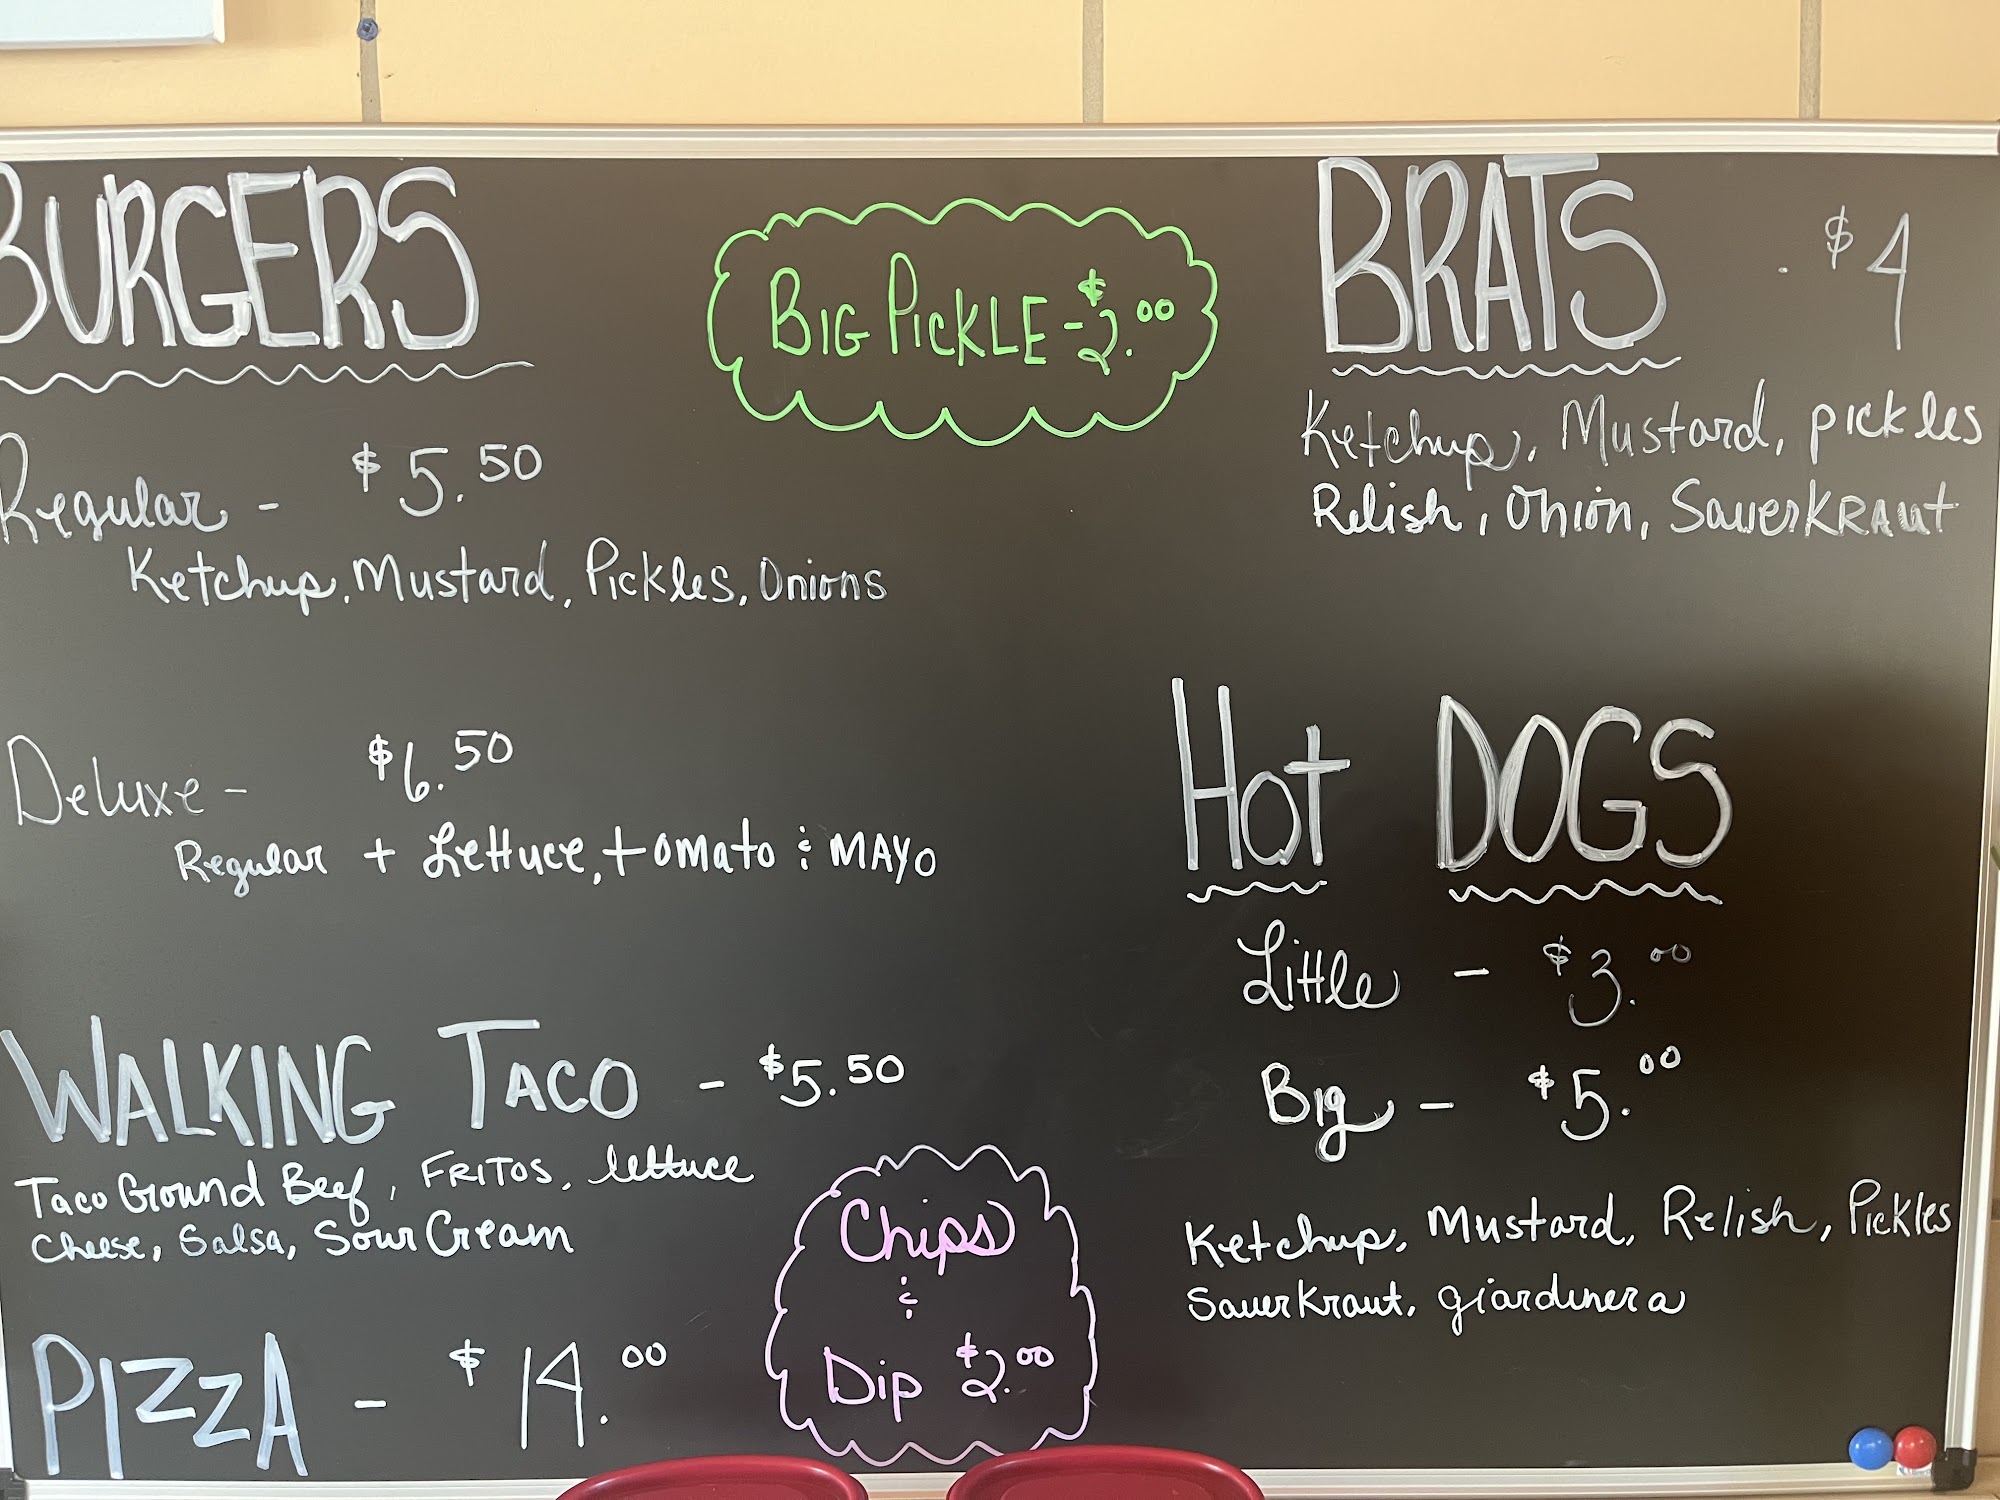 BURGERS
Regular - $5.50
Ketchup, Mustard, Pickles, Onions
Deluxe - $6.50
Regular + Lettuce, tomato & MAYO
WALKING TACO - $5.50
Taco Ground Beef, FRITOS, lettuce
Cheese, Salsa, Sour Cream
PIZZA - $14.00
BIG PICKLE - $2.00
Chips
&
Dip $2.00
BRATS . $4
Ketchup, Mustard, pickles
Relish, Onion, SauerKRAut
Hot DOGS
Little - $3.00
Big - $5.00
Ketchup, Mustard, Relish, Pickles
SauerKraut, giardinera